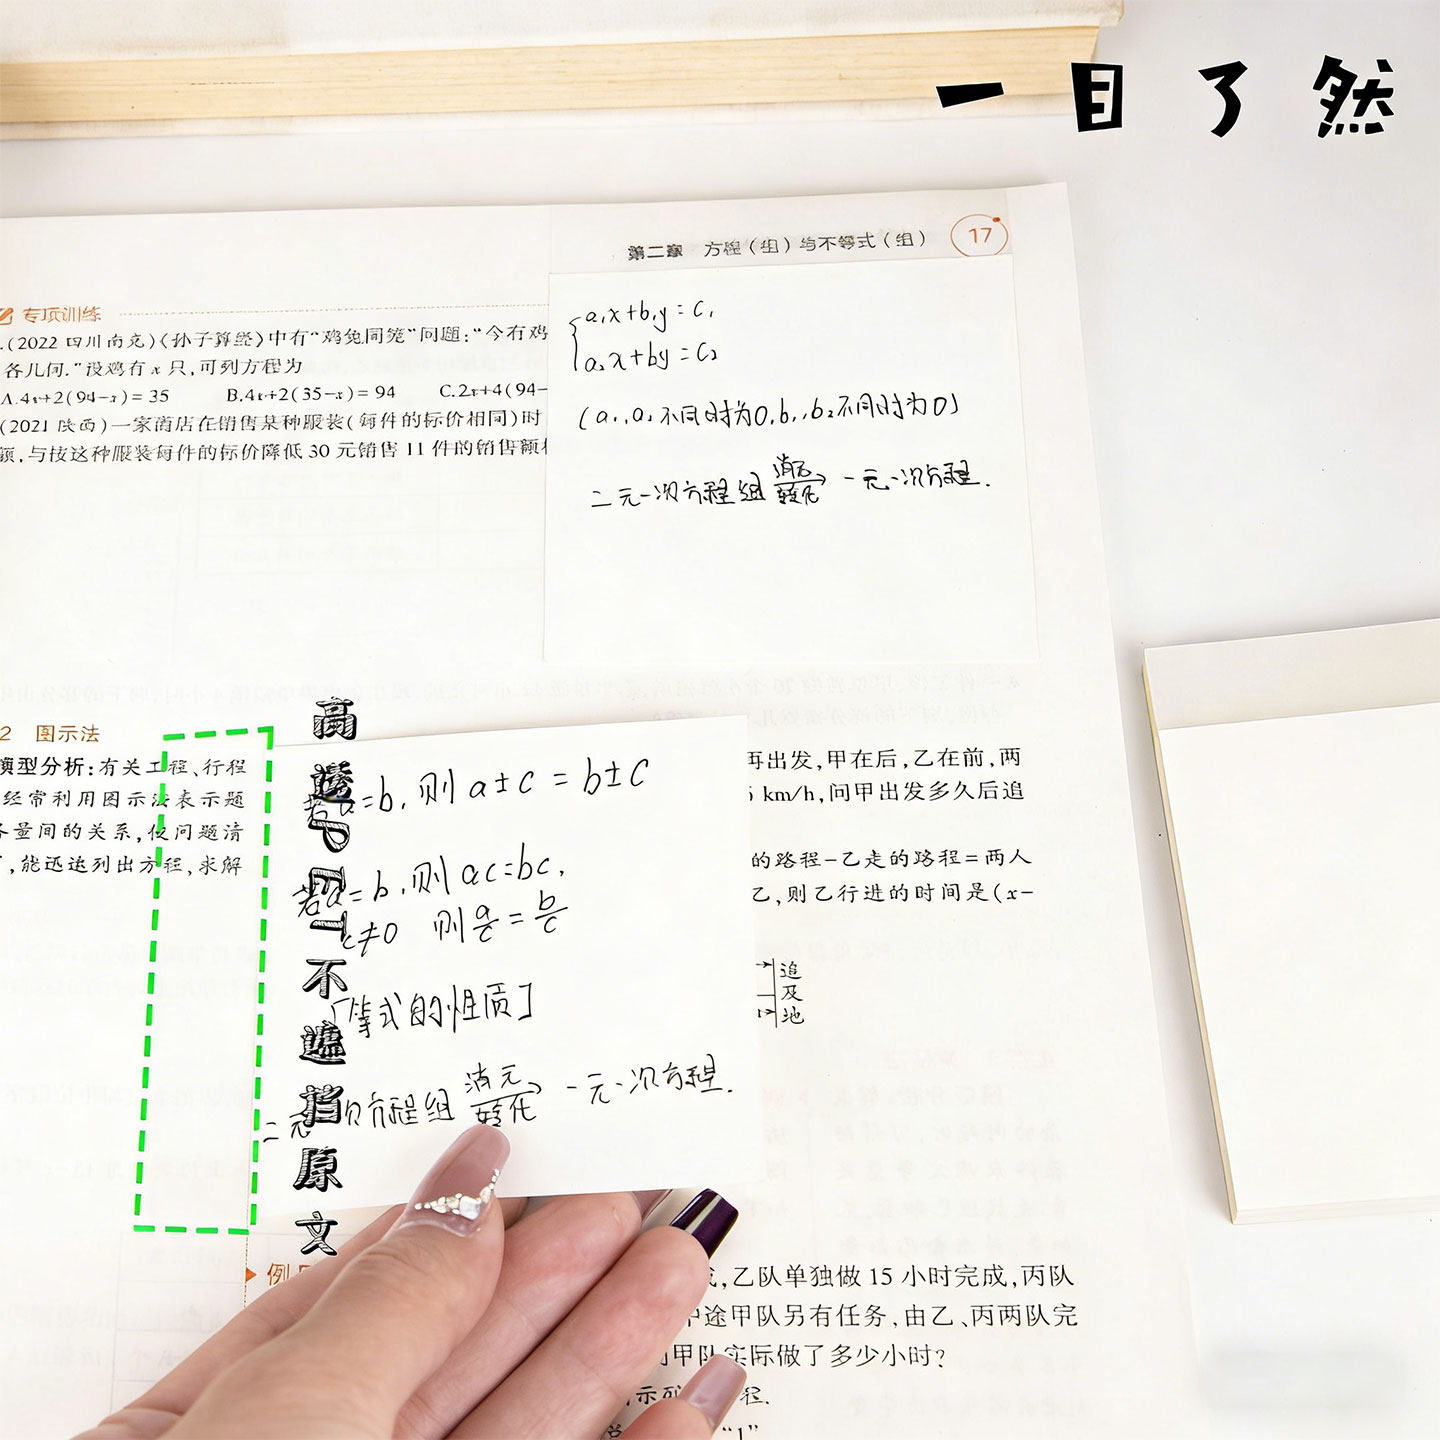 一目了然
第二章 方程（组）与不等式（组） 17
专项训练
.(2022 四川南充)《孙子算经》中有“鸡兔同笼”问题：“今有鸡
各几何.”设鸡有 x 只，可列方程为
A.4x+2(94-x)=35 B.4x+2(35-x)=94 C.2x+4(94-
(2021 陕西)一家商店在销售某种服装(每件的标价相同)时
额，与按这种服装每件的标价降低 30 元销售 11 件的销售额相
a₁x+b₁y=c₁
a₂x+by=c₂
(a₁,a₂不同时为0,b₁,b₂不同时为0)
二元一次方程组 消元 转化 一元一次方程.
2 图示法
模型分析：有关工程、行程
经常利用图示法表示题
各量间的关系，使问题清
，能迅速列出方程，求解
高透PET不遮挡原文
若a=b,则 a±c=b±c
若a=b,则 ac=bc,
c≠0 则 a/c=b/c
「等式的性质]
二元 次方程组 消元 转化 一元一次方程.
再出发，甲在后，乙在前，两
km/h，问甲出发多久后追
的路程-乙走的路程=两人
乙，则乙行进的时间是(x-
追
及
地
例
成，乙队单独做 15 小时完成，丙队
中途甲队另有任务，由乙、丙两队完
甲队实际做了多少小时？
示 程.
“1”